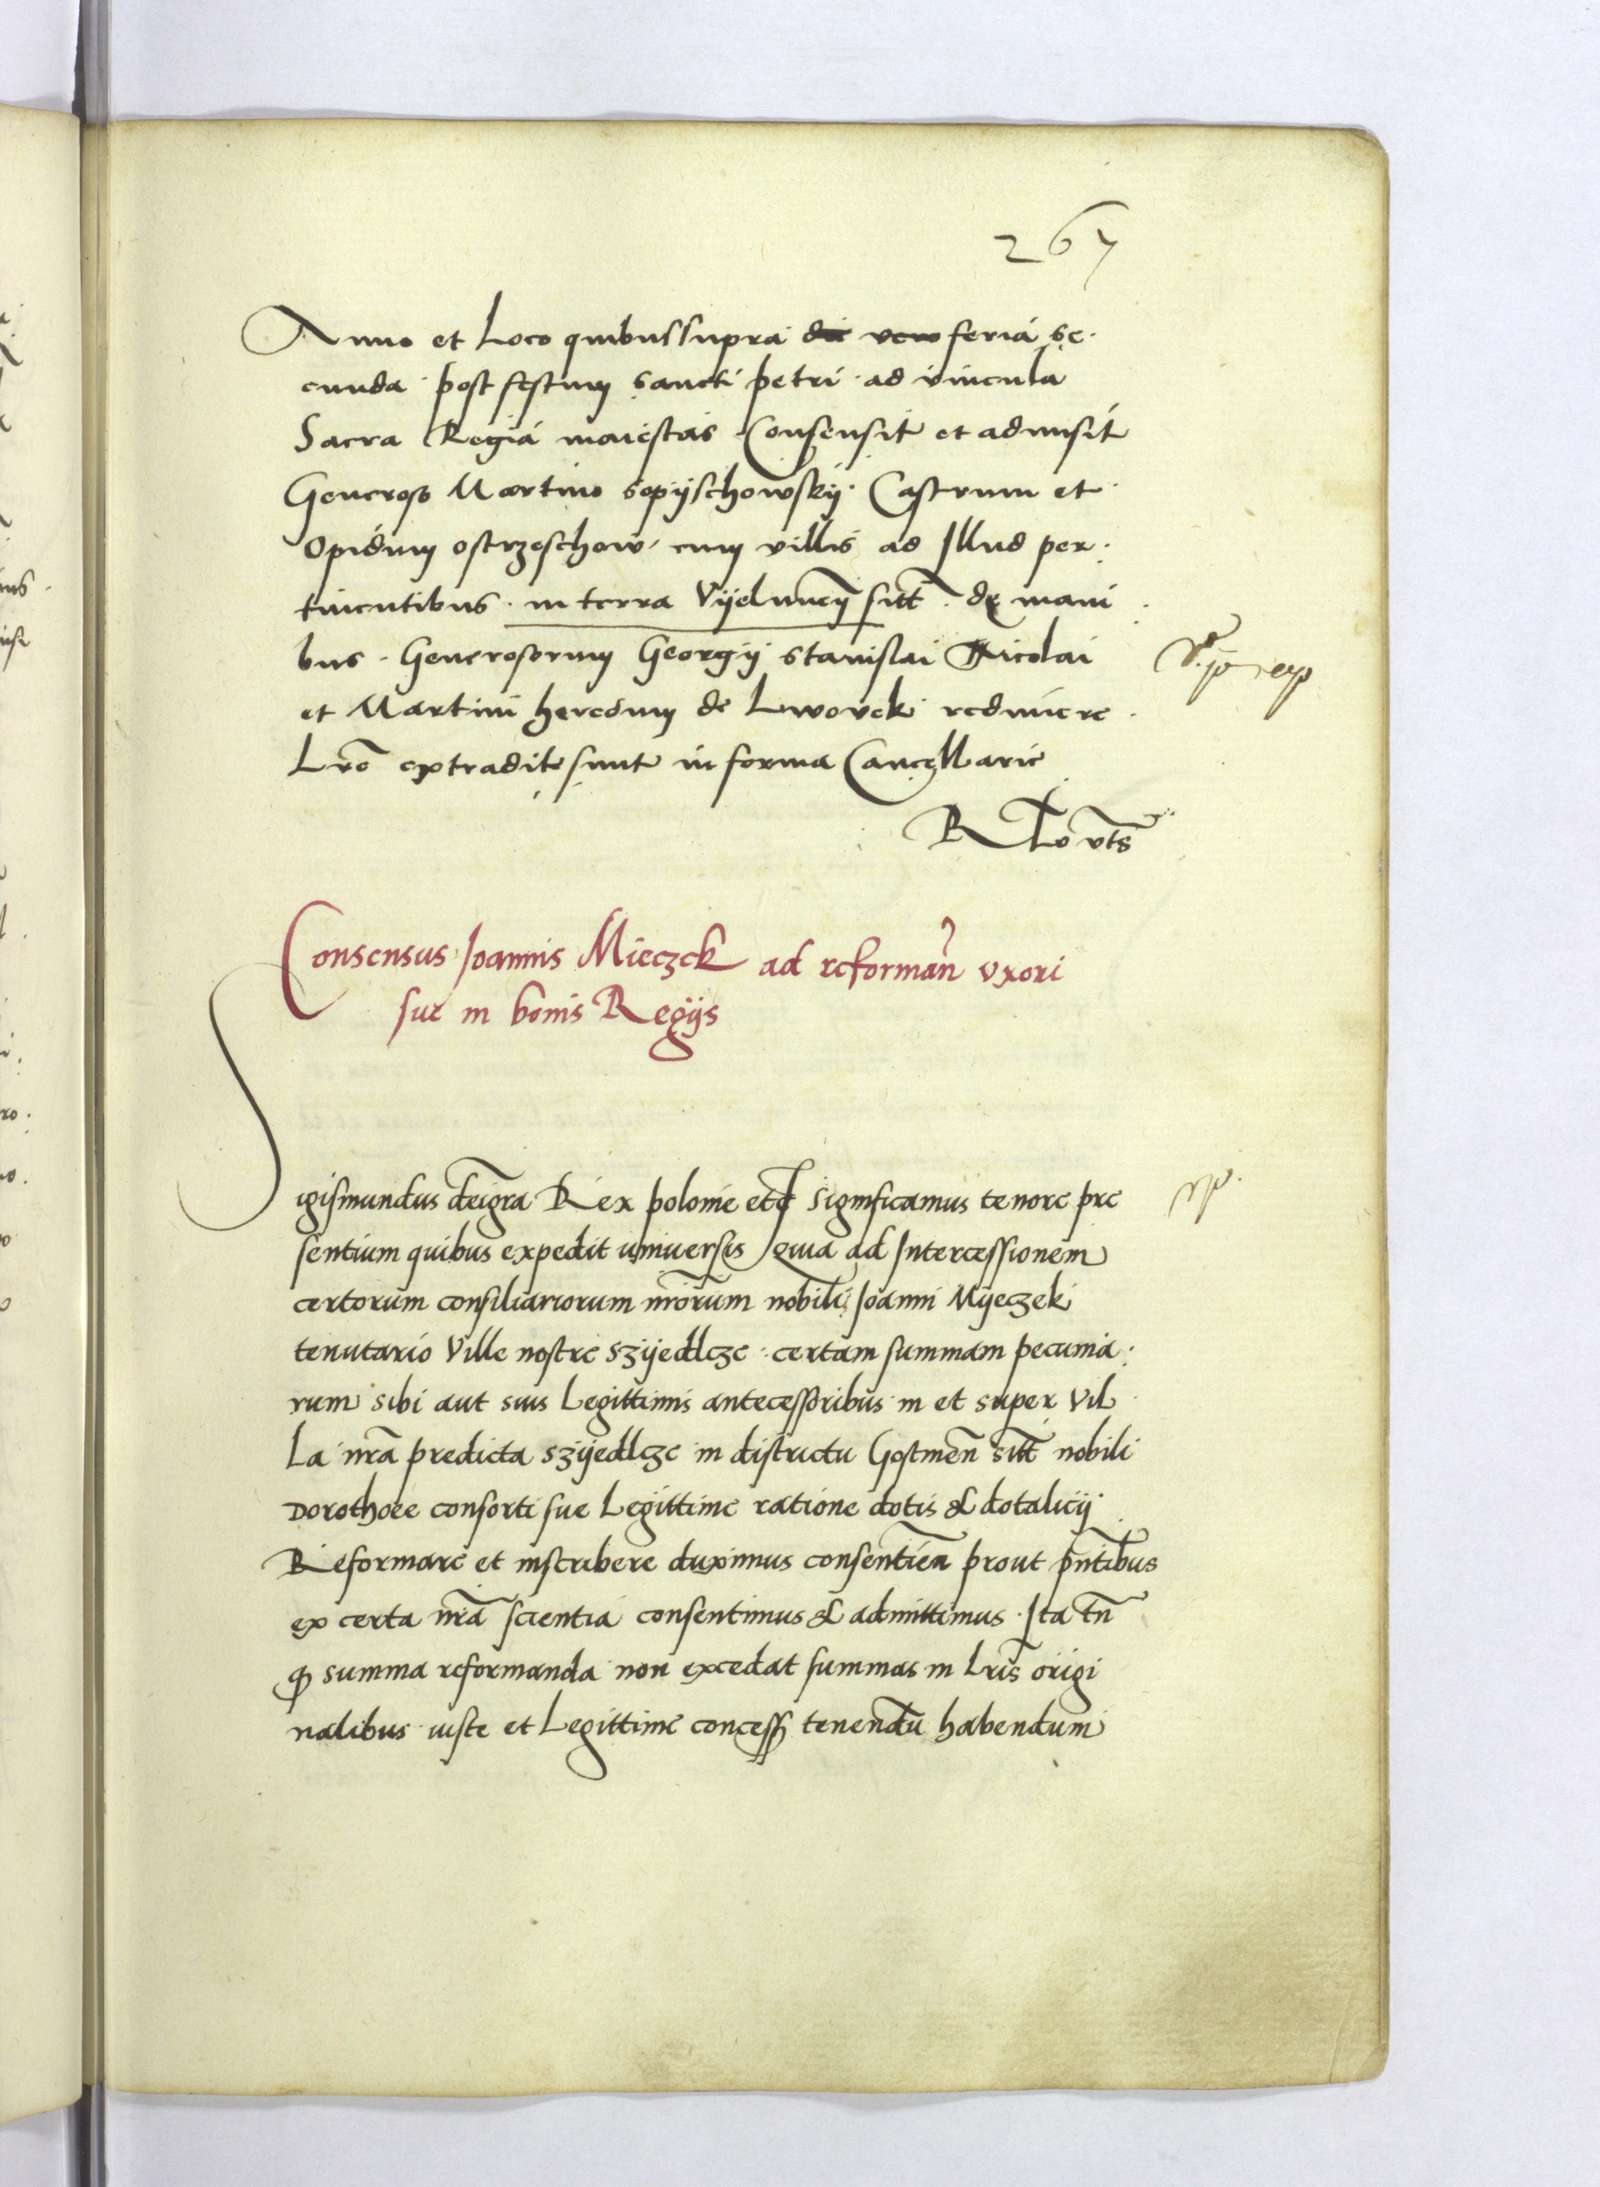 267
Anno et Loco quibus supra die vero feria se
cunda post festum sancti petri ad vincula
Sacra Regia maiestas Consensit et admisit
Generoso Martino sopijschowskij Castrum et
Opidum ostrzeschow cum villis ad Illud per
tinentibus in terra Vijelunen sitt de mani
bus Generosorum Georgij stanislai Nicolai
et Martini heredum de Lwovek redimere
Lre extradite sunt in forma Cancellarie
Consensus Joannis Mieczek ad reforman uxori
sue in bonis Regijs
Sigismundus dei gra Rex polonie etc Significamus tenore pre
sentium quibus expedit universis quia ad Intercessionem
certorum consiliariorum nrorum nobili Joanni Mijeczek
tenutario Ville nostre Szijedlcze certam summam pecunia
rum sibi aut suis Legittimis antecessoribus in et super Vil
La nra predicta szijedlcze in districtu Gostinen sitt nobili
Dorothee consorti sue Legittime ratione dotis & dotalicij
Reformare et inscribere duximus consentien prout pntibus
ex certa nra scientia consentimus & admittimus Ita tn
q summa reformanda non excedat summas in Lris origi
nalibus iuste et Legittime concess tenendu habendum